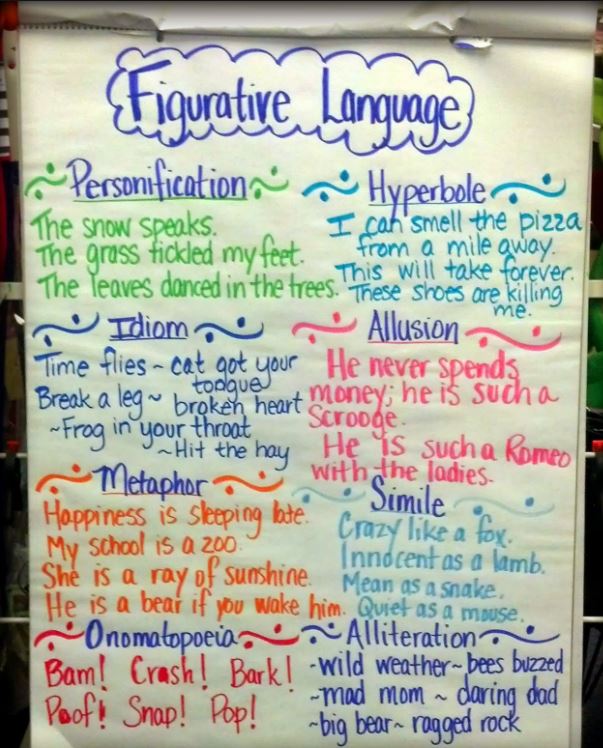 Figurative Language
Personification
The snow speaks.
The grass tickled my feet.
The leaves danced in the trees.
Hyperbole
I can smell the pizza
from a mile away.
This will take forever.
These shoes are killing
me.
Idiom
Time flies ~ cat got your
tongue
Break a leg ~ broken heart
~Frog in your throat
~Hit the hay
Allusion
He never spends
money; he is such a
Scrooge.
He is such a Romeo
with the ladies.
Metaphor
Happiness is sleeping late.
My school is a zoo.
She is a ray of sunshine.
He is a bear if you wake him.
Simile
Crazy like a fox.
Innocent as a lamb.
Mean as a snake.
Quiet as a mouse.
Onomatopoeia
Bam! Crash! Bark!
Poof! Snap! Pop!
Alliteration
~wild weather~ bees buzzed
~mad mom ~ daring dad
~big bear~ ragged rock